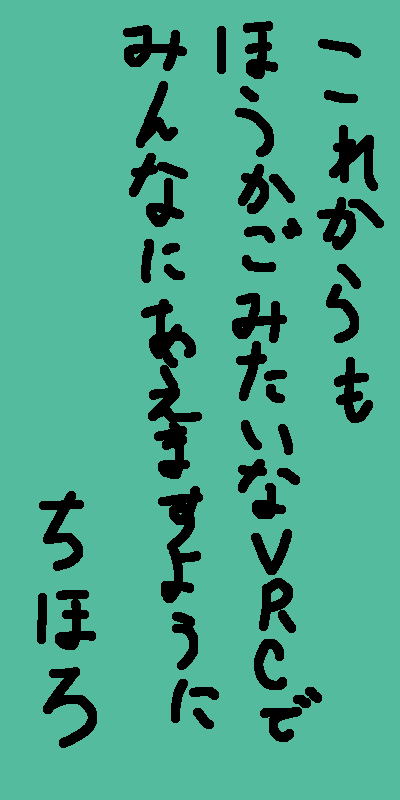 これからも
ほうかごみたいなVRCで
みんなにあえますように
ちほろ